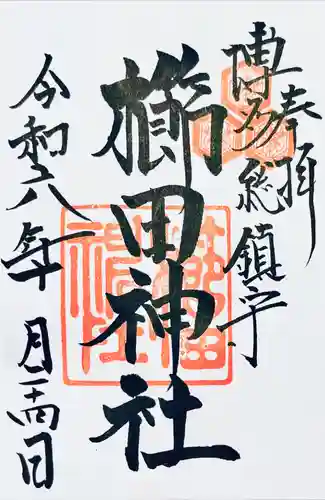 奉拝
博多総鎮守
櫛田神社
令和六年十月二十四日